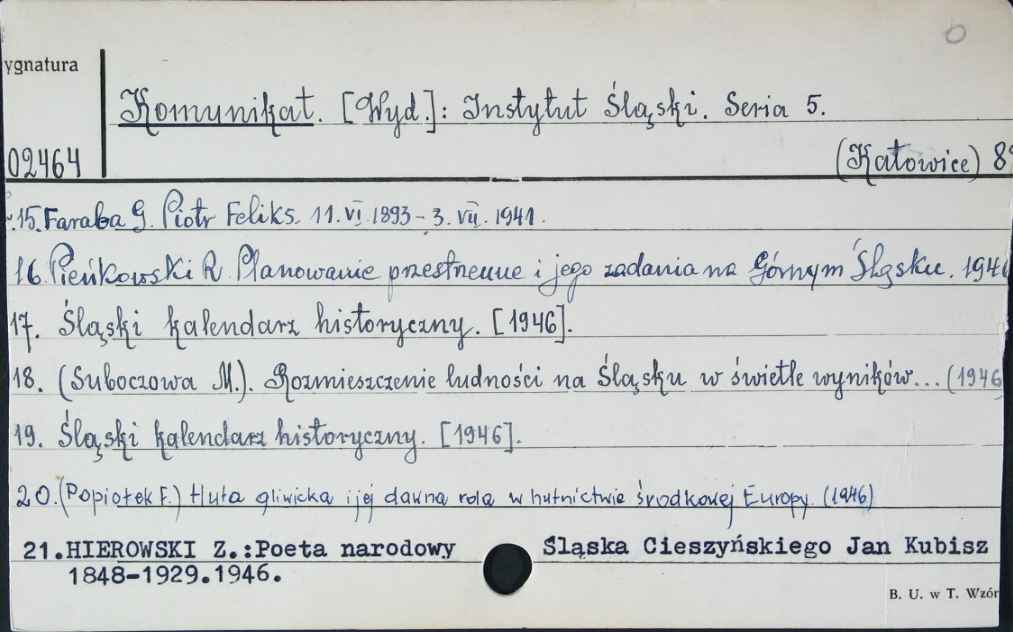 ygnatura
Komunikat. [Wyd.]: Instytut Śląski. Seria 5.
02464
(Katowice) 8°
15. Faraba G. Piotr Feliks. 11. VI. 1893 - 3. VII. 1941.
16. Pieńkowski R. Planowanie przestrzenne i jego zadania na Górnym Śląsku. 1946
17. Śląski kalendarz historyczny. [1946].
18. (Suboczowa M.). Rozmieszczenie ludności na Śląsku w świetle wyników... (1946
19. Śląski kalendarz historyczny. [1946].
20. (Popiołek F.) Huta gliwicka i jej dawna rola w hutnictwie środkowej Europy. (1946)
21.HIEROWSKI Z.:Poeta narodowy Śląska Cieszyńskiego Jan Kubisz
1848-1929.1946.
B. U. w T. Wzór